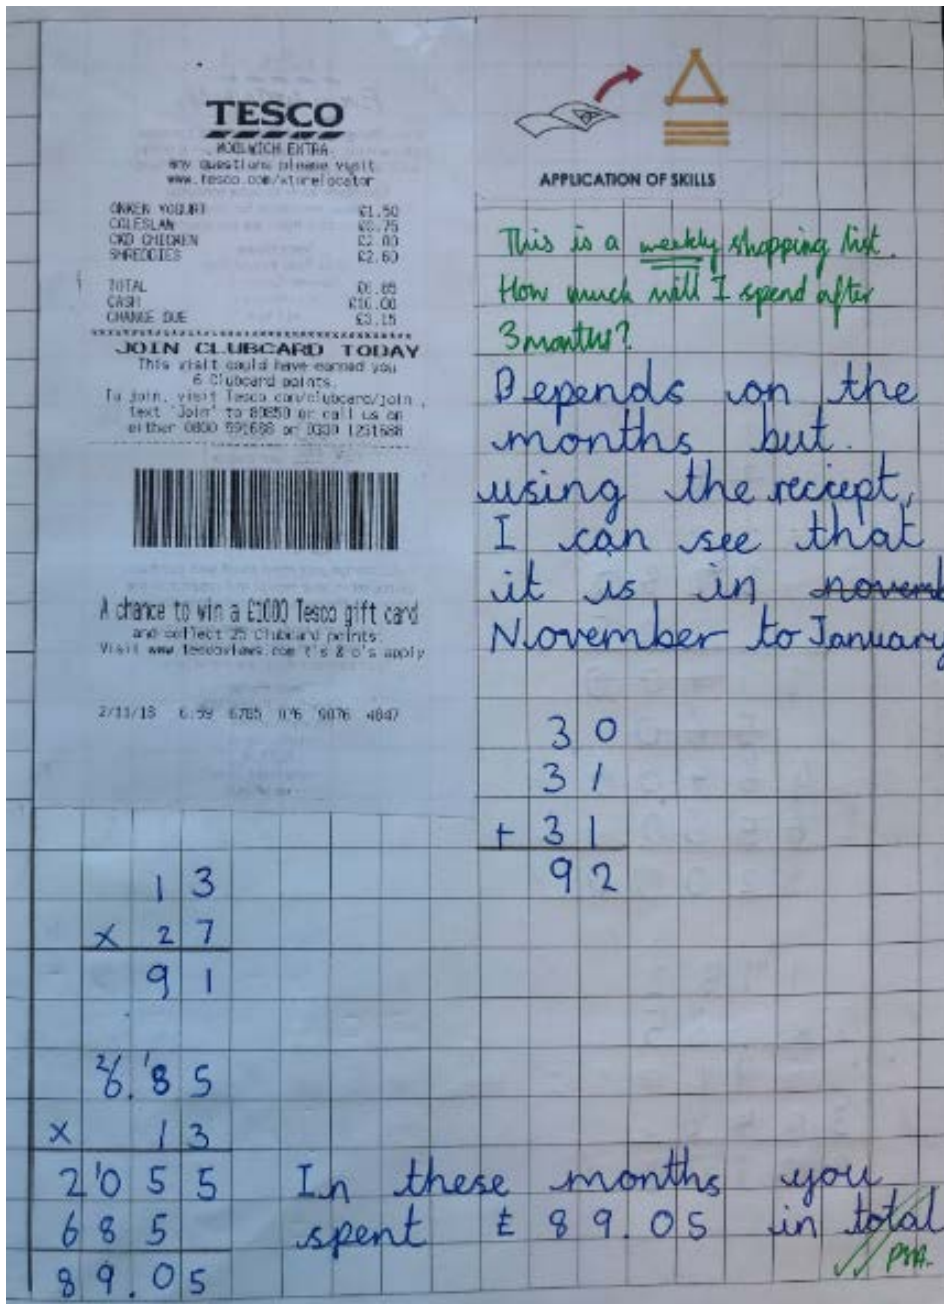 TESCO
WOOLWICH EXTRA
any questions please visit
www.tesco.com/storelocator
ONKEN YOGURT £1.50
COLESLAW £0.75
CKD CHICKEN £2.00
SHREDDIES £2.60
TOTAL £6.85
CASH £10.00
CHANGE DUE £3.15
JOIN CLUBCARD TODAY
This visit could have earned you
6 Clubcard points.
To join, visit Tesco.com/clubcard/join,
text 'Join' to 80850 or call us on
either 0800 591688 or 0330 1231688
A chance to win a £1000 Tesco gift card
and collect 25 Clubcard points.
Visit www.tescoviews.com t's & c's apply
2/11/18 6785 9076 4047
APPLICATION OF SKILLS
This is a weekly shopping list.
How much will I spend after
3 months?
Depends on the
months but
using the reciept,
I can see that
it is in novemb
November to January
30
31
+ 31
92
13
x 27
91
6.85
x 13
2055
685
89.05
In these months you
spent £89.05 in total